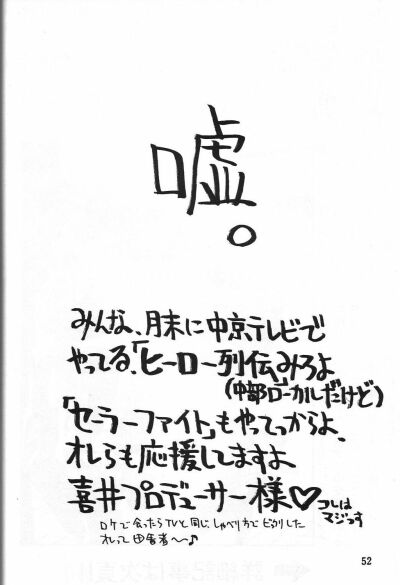 嘘。
みんな、月末に中京テレビで
やってる「ヒーロー列伝」みろよ
(中部ローカルだけど)
「セーラーファイト」もやってっからよ、
オレらも応援してますよ
喜井プロデューサー様♡
コレは
マジっす
ロケで会ったらTVと同じしゃべり方でビックリした
オレって田舎者〜♪
52